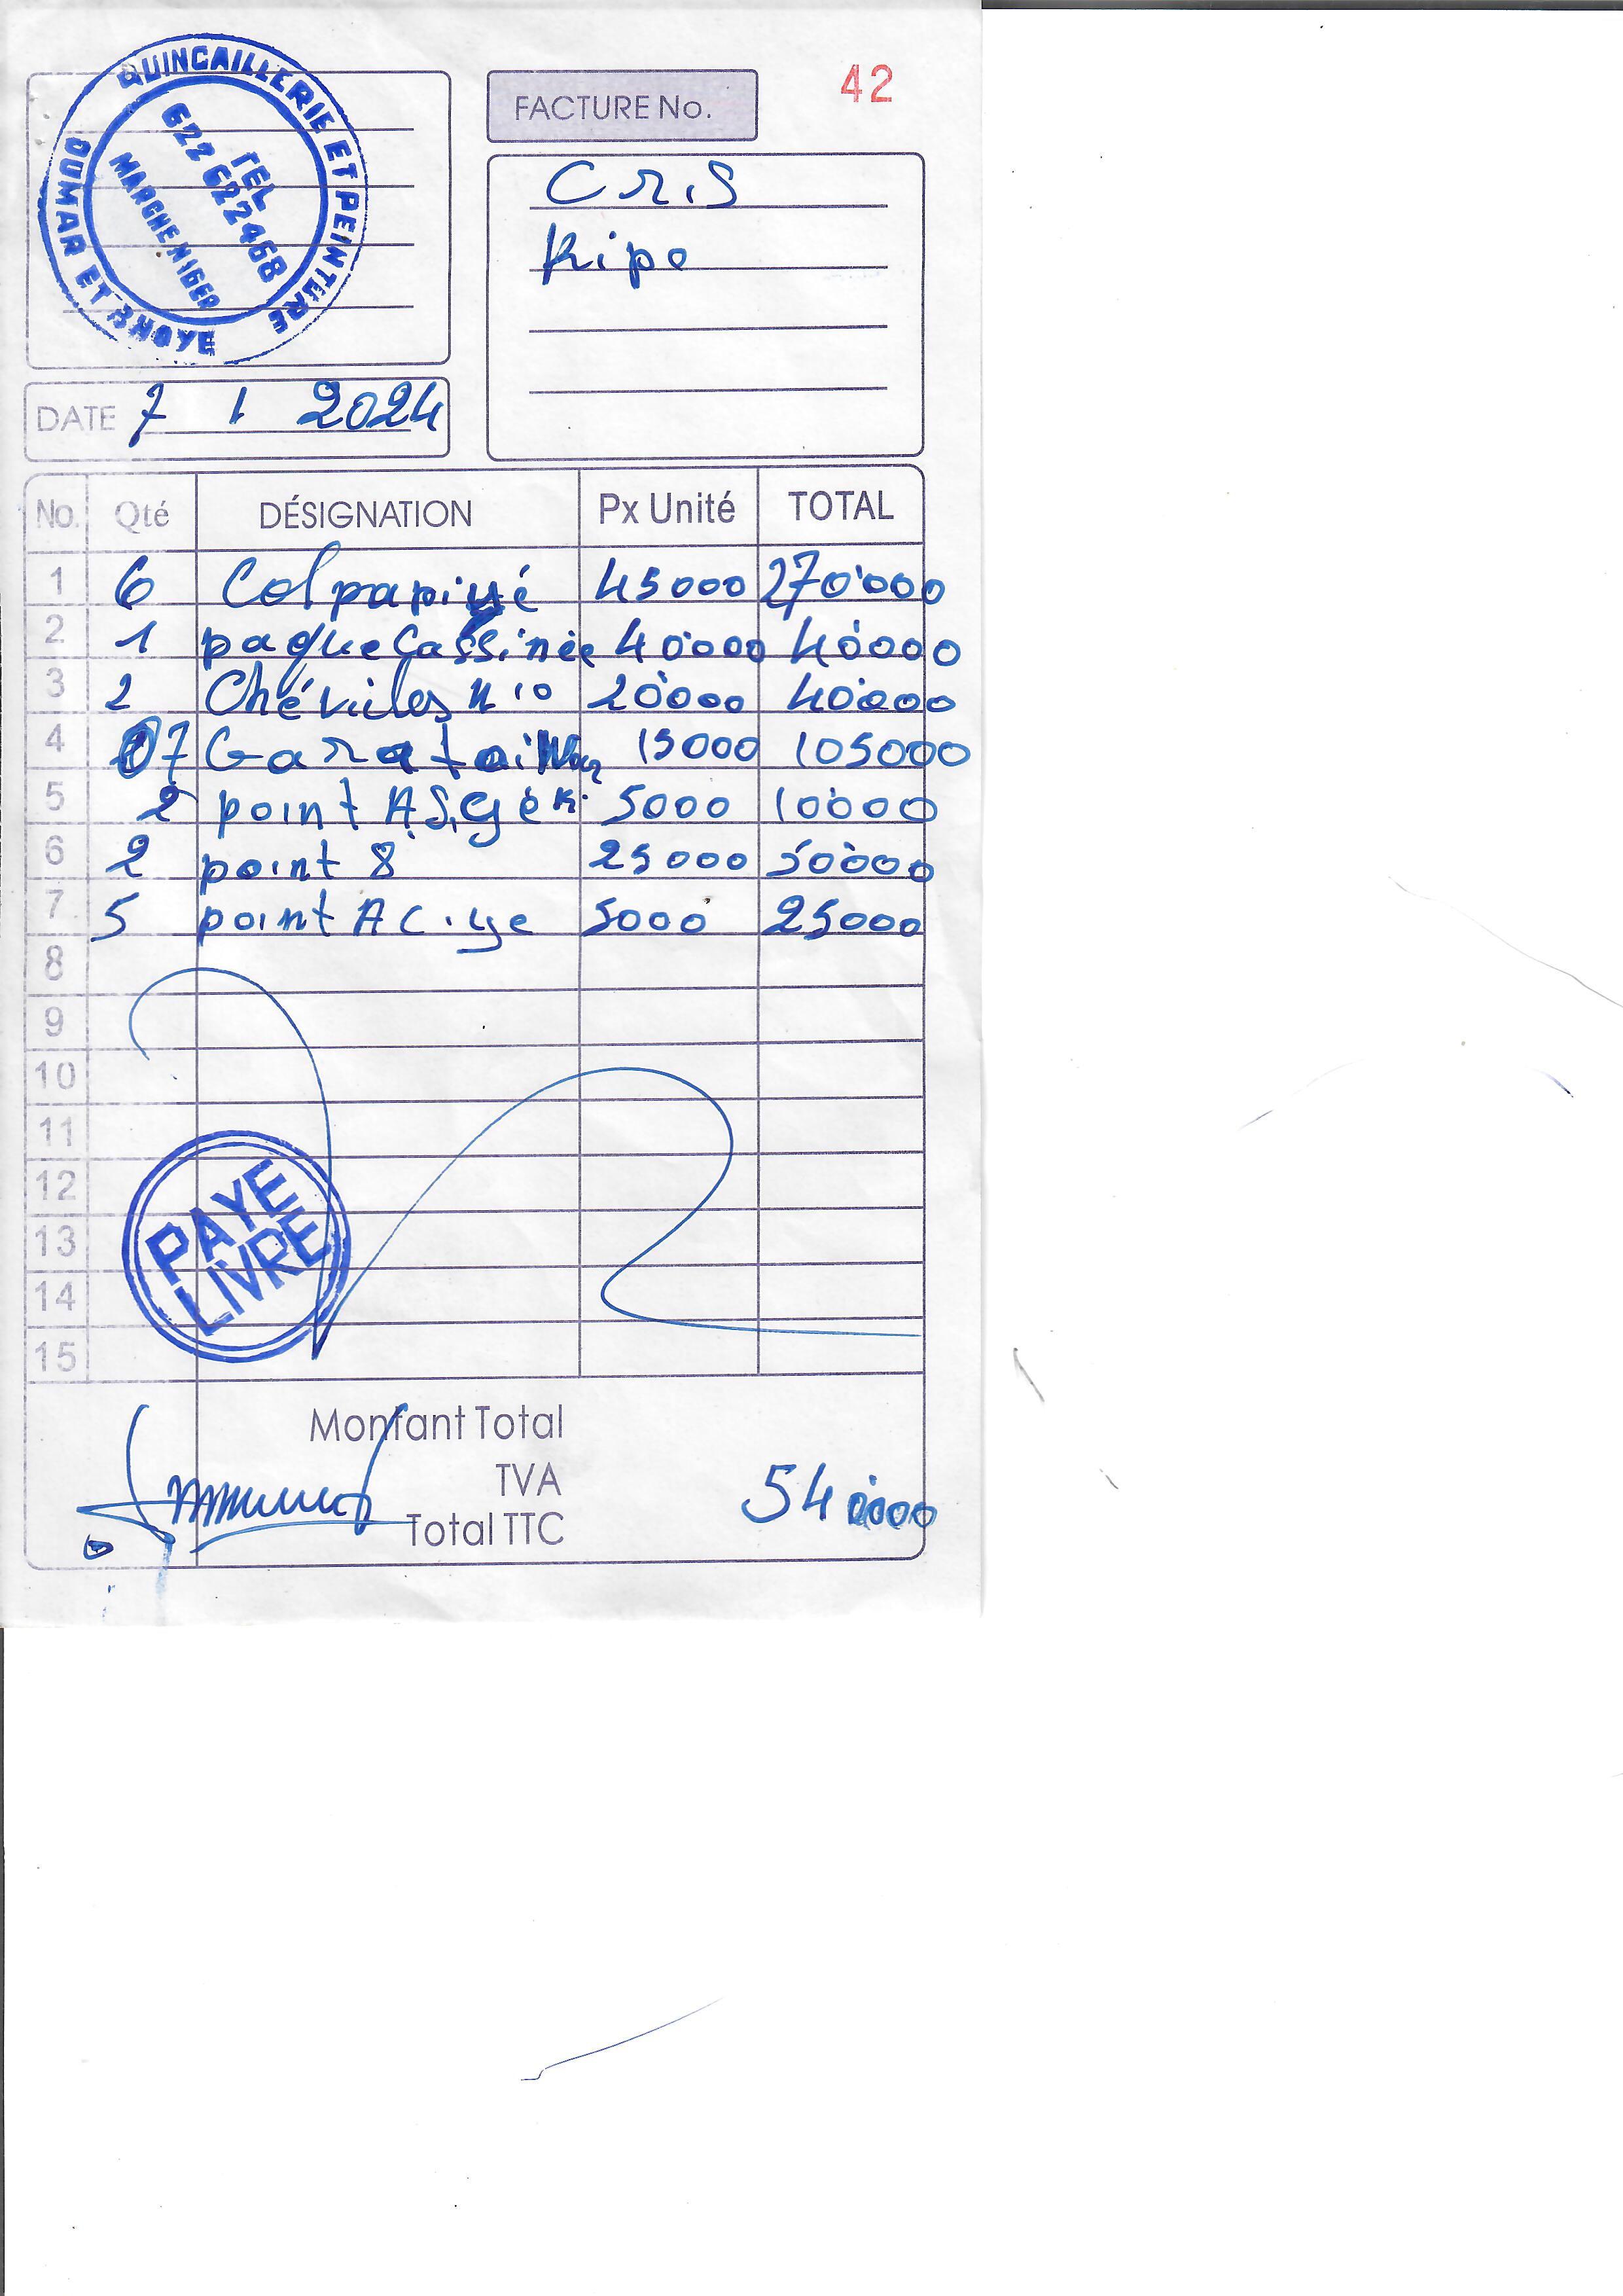 QUINCAILLERIE ET PEINTURE
OUMAR ET BHOYE
TEL
622 622 468
MARCHE NIGER
FACTURE No. 42
C R . S
Kipe
DATE 7 1 2024
No. Qté DÉSIGNATION Px Unité TOTAL
1 6 Col papiyé 45000 270'000
2 1 paque 40'000 40'000
3 2 Chéviles n 10 20'000 40'000
4 07 15000 105000
5 2 point 5000 10'000
6 2 point 8 25000 50'000
7 5 point AC.ye 5000 25000
8
9
10
11
12
13
14
15
PAYE
LIVRE
Montant Total
TVA
Total TTC
54 0'000